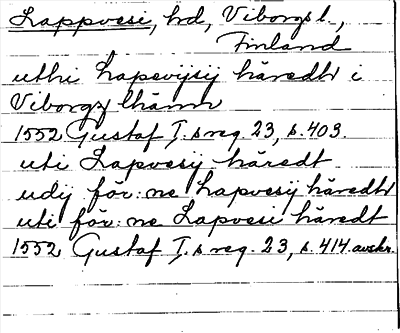 Lappvesi, hd, Viborgs l.,
Finland
uthi Lapevijsij häredt i
Viborgz lhänn
1552 Gustaf I.s reg. 23, s. 403.
uti Lapvesij häredt
udij för:ne Lapvesij häredt
uti för:ne Lapvesi häredt
1552 Gustaf I.s reg. 23, s. 414 avskr.